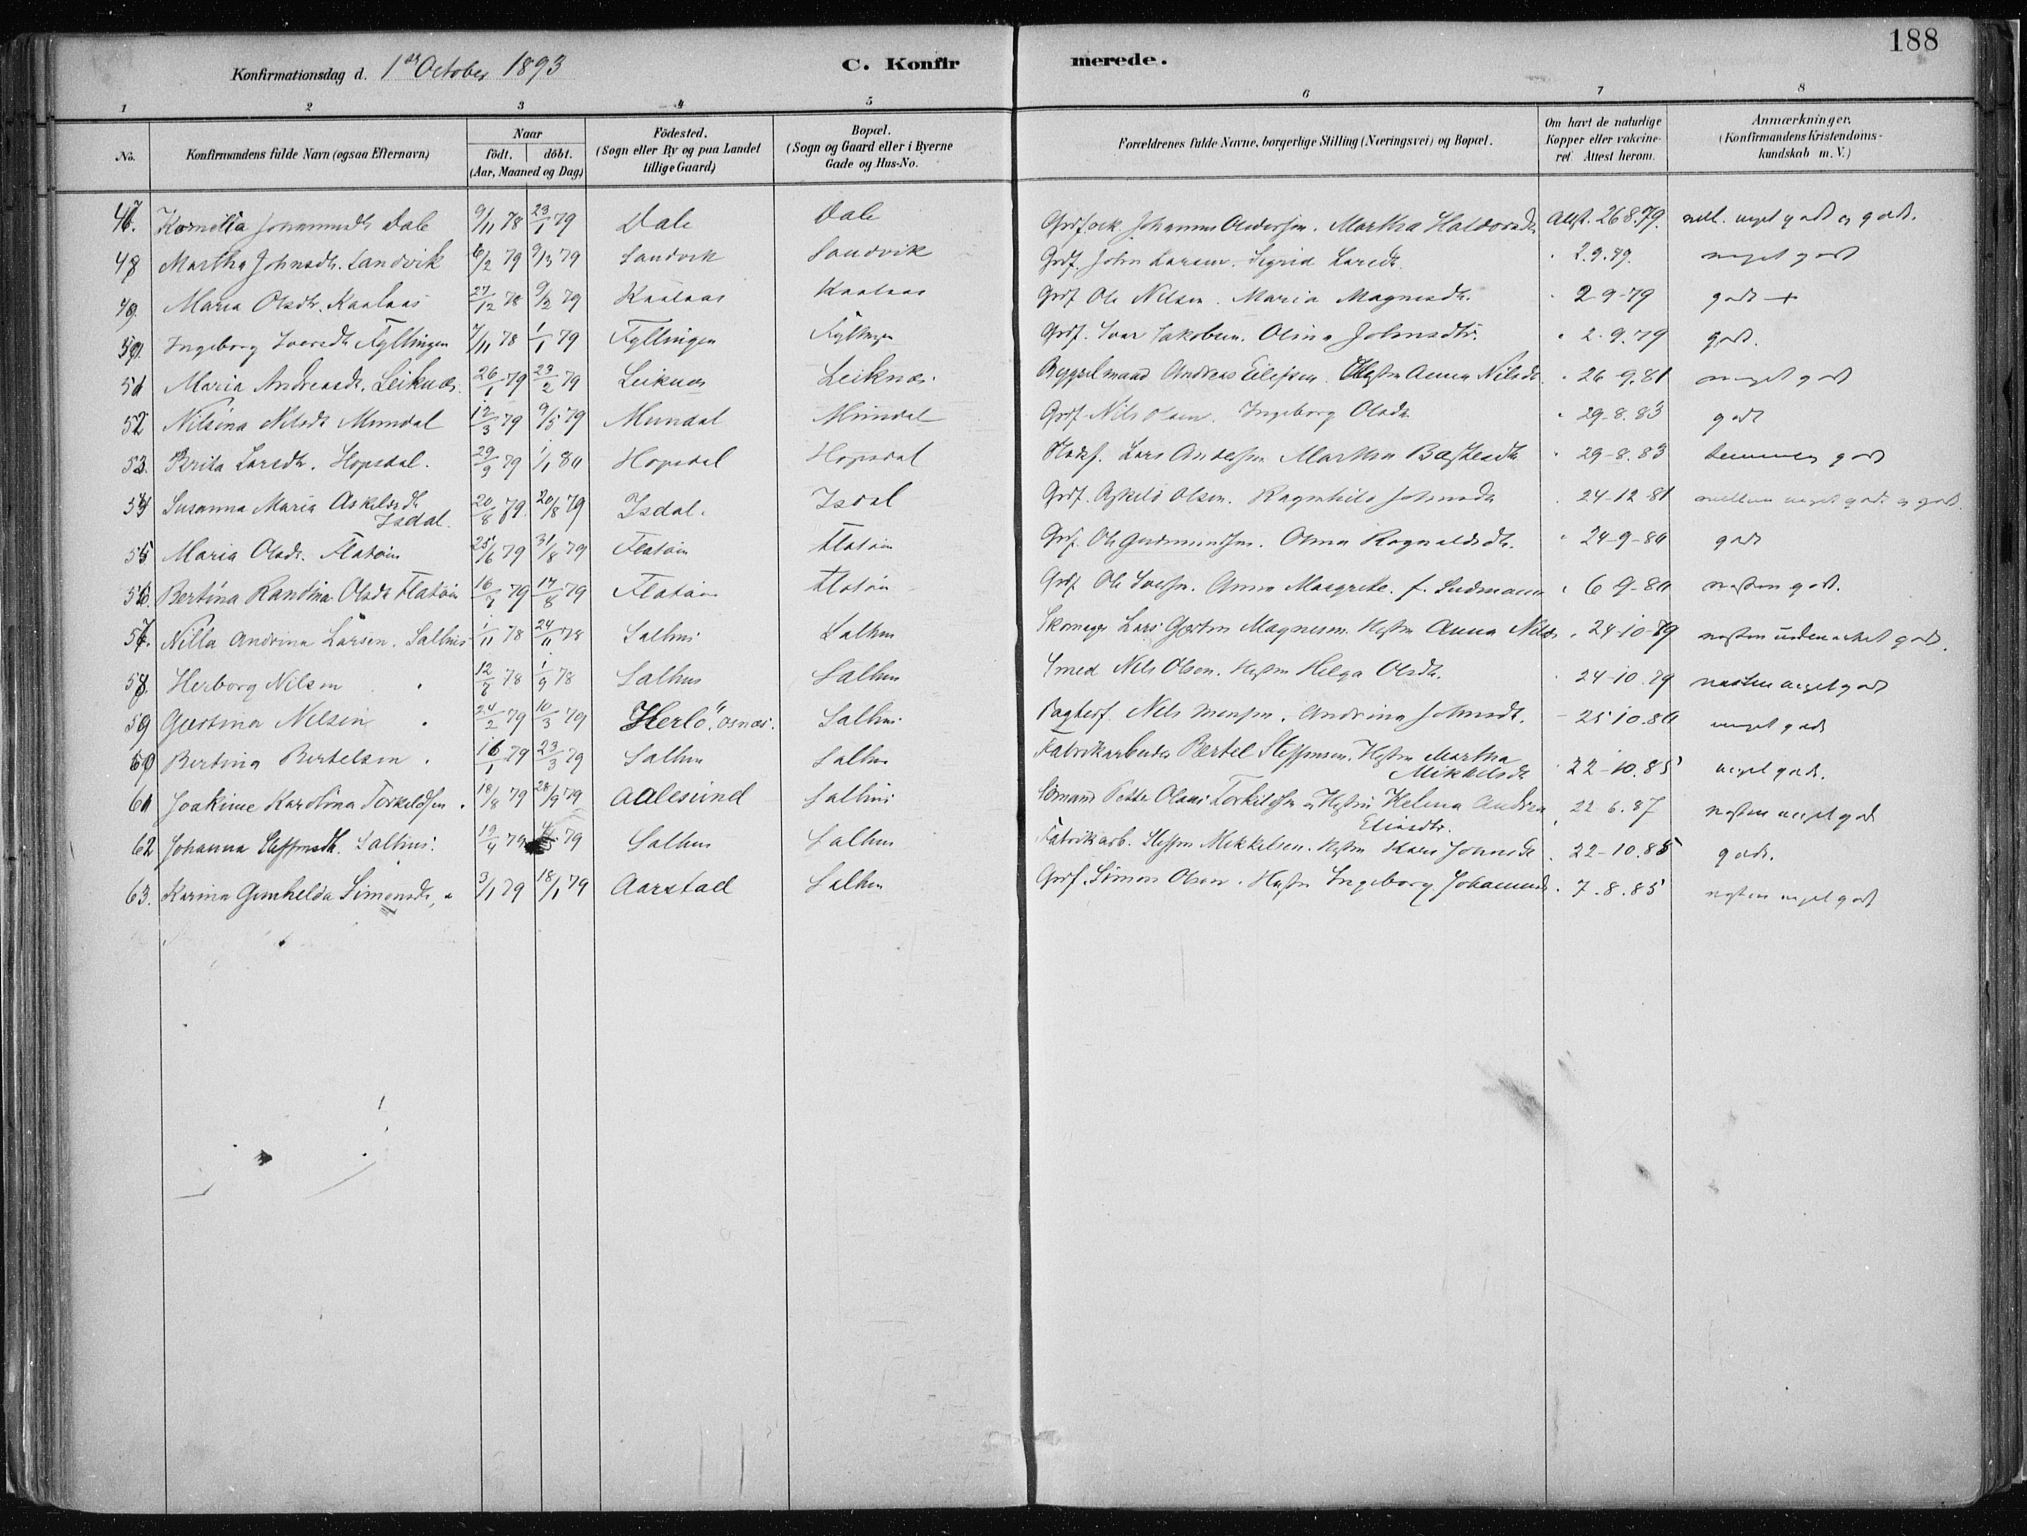 188
Konfirmationsdag d. 1ste October 1893 C. Konfirmerede.
1 2 3 4 5 6 7 8
No. Konfirmandens fulde Navn (ogsaa Efternavn) Naar födt. döbt. (Aar, Maaned og Dag) Födested. (Sogn eller By og paa Landet tillige Gaard) Bopæl. (Sogn og Gaard eller i Byerne Gade og Hus-No. Forældrenes fulde Navne, borgerlige Stilling (Næringsvei) og Bopæl. Om havt de naturlige Kopper eller vakcineret Attest herom. Anmærkninger. (Konfirmandens Kristendomskundskab m. V.)
47. Kornelia Johannesdt Dale 9/11 78 23/1 79 Dale Dale Johannes Andersen. Martha Haldorsdt Attst. 26 8.79. mell. meget godt og godt.
48 Martha Johnsdt. Sandvik 6/2 79 9/3 79 Sandvik Sandvik Grdf. John Larsen. Sigrid Larsdt. " 2.9.79. meget godt
49 Maria Olsdt. Kaalaas 27/12 78 9/2 79 Kaalaas Kaalaas Grdf Ole Nilsen. Maria Magnesdt. " 2-9-79 godt +
50 Ingeborg Iversdt Fyllingen 7/11 78 1/1 79 Fyllingen Fyllingen Grdf. Iver Jakobsen. Olina Johnsdtr. " 2.9.79 godt.
51 Maria Andreasdt. Leiknæs. 26/1 79 23/2 79 Leiknæs Leiknæs. Andreas Eilefsen. Hustru Anna Nilsdt. " 26-9.81 meget godt
52 Nilsina Nilsdt Mundal 12/3 79 9/5 79 Mundal Mundal Grdf Nils Olsen. Ingeborg Olsdt. " 29-8.83 godt
53. Brita Larsdt. Hopsdal. 29/9 79 1/1 80 Hopsdal Hopsdal Lars Andersen Martha " 29-8.83 temmelig godt
54 Susanna Maria Askildsdt Isdal. 20/8 79 20/8 79 Isdal. Isdal Grdf. Askild Olsen. Ragnhild Johnsdt " 24-12 81 mellem meget godt og godt.
55 Maria Olsdt. Flatøen 25/6 79 31/8 79 Flatøen Flatøen Grdf. Ole Gudmundsen. Olina Ragnaldsdt. " 24-9-80 godt
56. Bertina Randina Olsdt Flatøen 16/7 79 17/8 79 Flatøen Flatøen Grdf Ole Iversen. Anna Margrete. f. " 6-9-80 næsten godt.
57. Nilla Andrina Larsen. Salhus 1/11 78 24/11 78 Salhus Salhus Skomager Lars Magnesen. Hustru Anna Nilsdt " 24-10-79 næsten udmærket godt.
58 Herborg Nilsen " 12/8 78 1/9 78 Salhus Salhus Smed Nils Olsen. Hustru Helga Olsdt. " 24-10.79 næsten meget godt
59 Gjertina Nilsen " 24/2 79 10/3 79 Herlö, Salhus. Nils Monsen. Andrina Johnsdt. - 25 10.80 meget godt
60 Bertina Bertelsen " 16/1 79 23/3 79 Salhus Salhus Fabrikarbeider Bertel Steffensen. Hustru Martha Mikkelsdt " 22-10.85 meget godt.
61 Joakime Karolina Torkildsen " 18/8 79 28/9 79 Aalesund Salhus Sömand Petter Olaus Torkildsen og Hustru Helena Andrea Eliasdtr. " 22 6.87 næsten meget godt
62 Johanna Steffensdt. Salhus. 19/4 79 79 Salhus Salhus Fabrikarb. Steffen Mikkelsen. Hustru Kari Johnsdt " 22-10.85 godt.
63. Karina Gunhelda Simonsdt. " 3/1 79 18/1 79 Aarstad Salhus Grdf. Simon Olsen. Hustru Ingeborg Johannesdt " 7.8.85 næsten meget godt